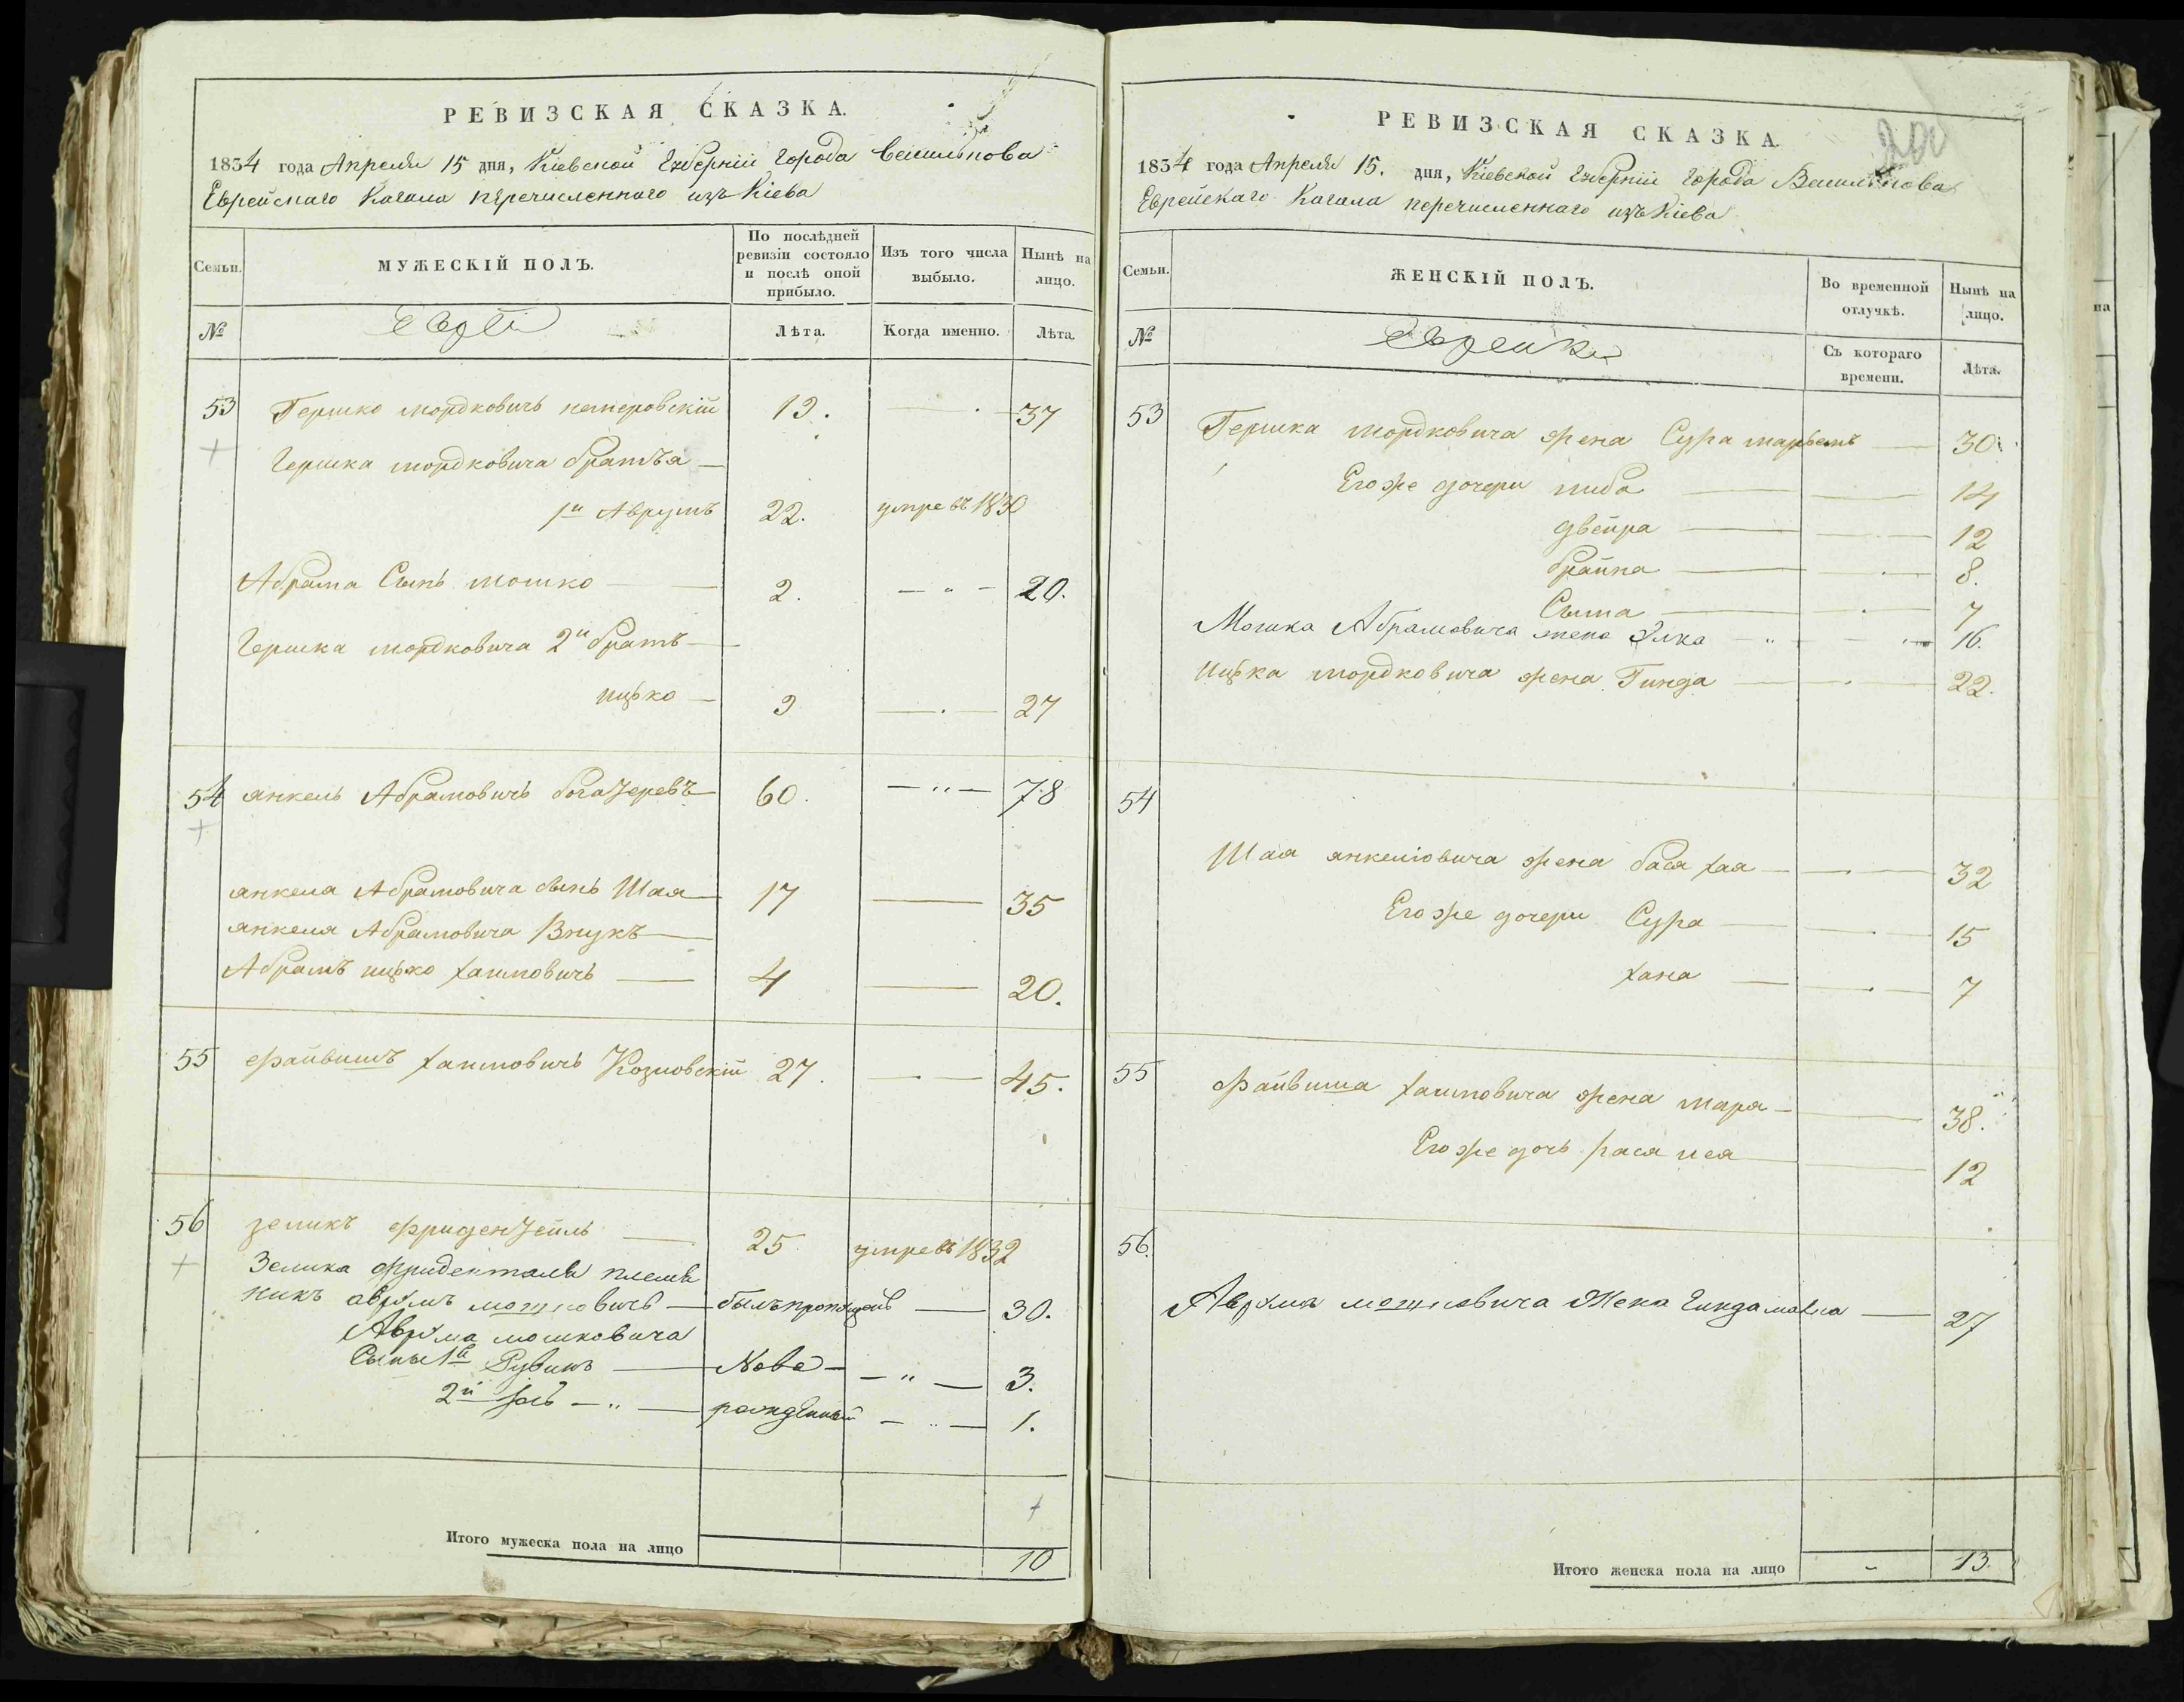 РЕВИЗСКАЯ СКАЗКА.
1834 года Апреля 15 дня, Кіевской Губерніи города Василькова
Еврейскаго Кагала перечисленнаго изъ Кіева
Семьи.
МУЖЕСКІЙ ПОЛЪ.
По послѣдней
ревизіи состояло
и послѣ оной
прибыло.
Изъ того числа
выбыло.
Нынѣ на
лицо.
№
Евреи
Лѣта.
Когда именно.
Лѣта.
53 Гершко мордковичь немеровскій 19. 37
Гершка мордковича братья
1й Аврумъ 22. умре въ 1830
Абрама Сынъ мошко 2. 20.
Гершка мордковича 2й братъ
ицько 9 27
54 янкель Абрамовичь 60. 78
янкеля Абрамовича сынъ Шая 17 35
янкеля Абрамовича Внукъ
Абрамъ ицько хаимовичь 4 20.
55 Файвишъ хаимовичь Козловскій 27. 45.
56 зеликъ Фриденталь 25 умре въ 1832
Зелика Фриденталя племя
никъ аврумъ мошковичь былъ пропущенъ 30.
Аврума мошковича
Сыны 1й Рувинъ Ново 3.
2й рожденный 1.
Итого мужеска пола на лицо 10
РЕВИЗСКАЯ СКАЗКА.
1834 года Апреля 15. дня, Кіевской Губерніи города Василькова
Еврейскаго Кагала перечисленнаго изъ Кіева
Семьи.
ЖЕНСКІЙ ПОЛЪ.
Во временной
отлучкѣ.
Нынѣ на
лицо.
№
Еврейки
Съ котораго
времени.
Лѣта.
53 Гершка мордковича жена Сура марьемъ 30.
Его же дочери либа 14
двейра 12
брайна 8.
Сыма 7
Мошка Абрамовича жена Элка 16.
Ицька мордковича жена Гинда 22.
54
Шая янкеліовича жена бася хая 32
Его же дочери Сура 15
хана 7
55 Файвиша хаимовича жена мара 38.
Его же дочь рася лея 12
56.
Аврума мошковича Жена Гинда малка 27
Итого женска пола на лицо 13.